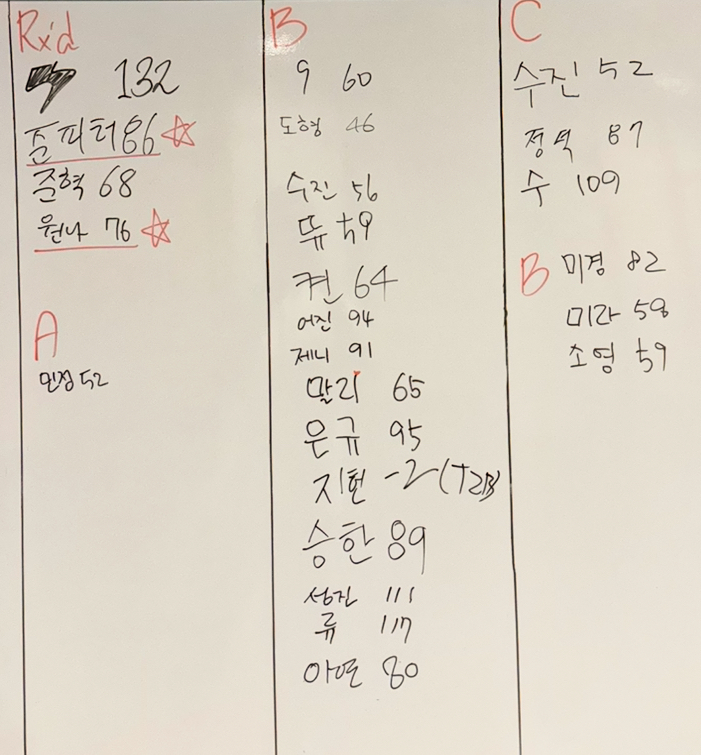 Rx'd
132
줌피터 86 ☆
준혁 68
원나 76 ☆
A
민정 52
B
9 60
도형 46
수진 56
뜌 59
켠 64
어진 94
제니 91
말리 65
은규 95
지현 -2 (T2B)
승한 89
성진 111
류 117
아연 80
C
수진 52
정덕 87
수 109
B
미경 82
미라 58
소영 59